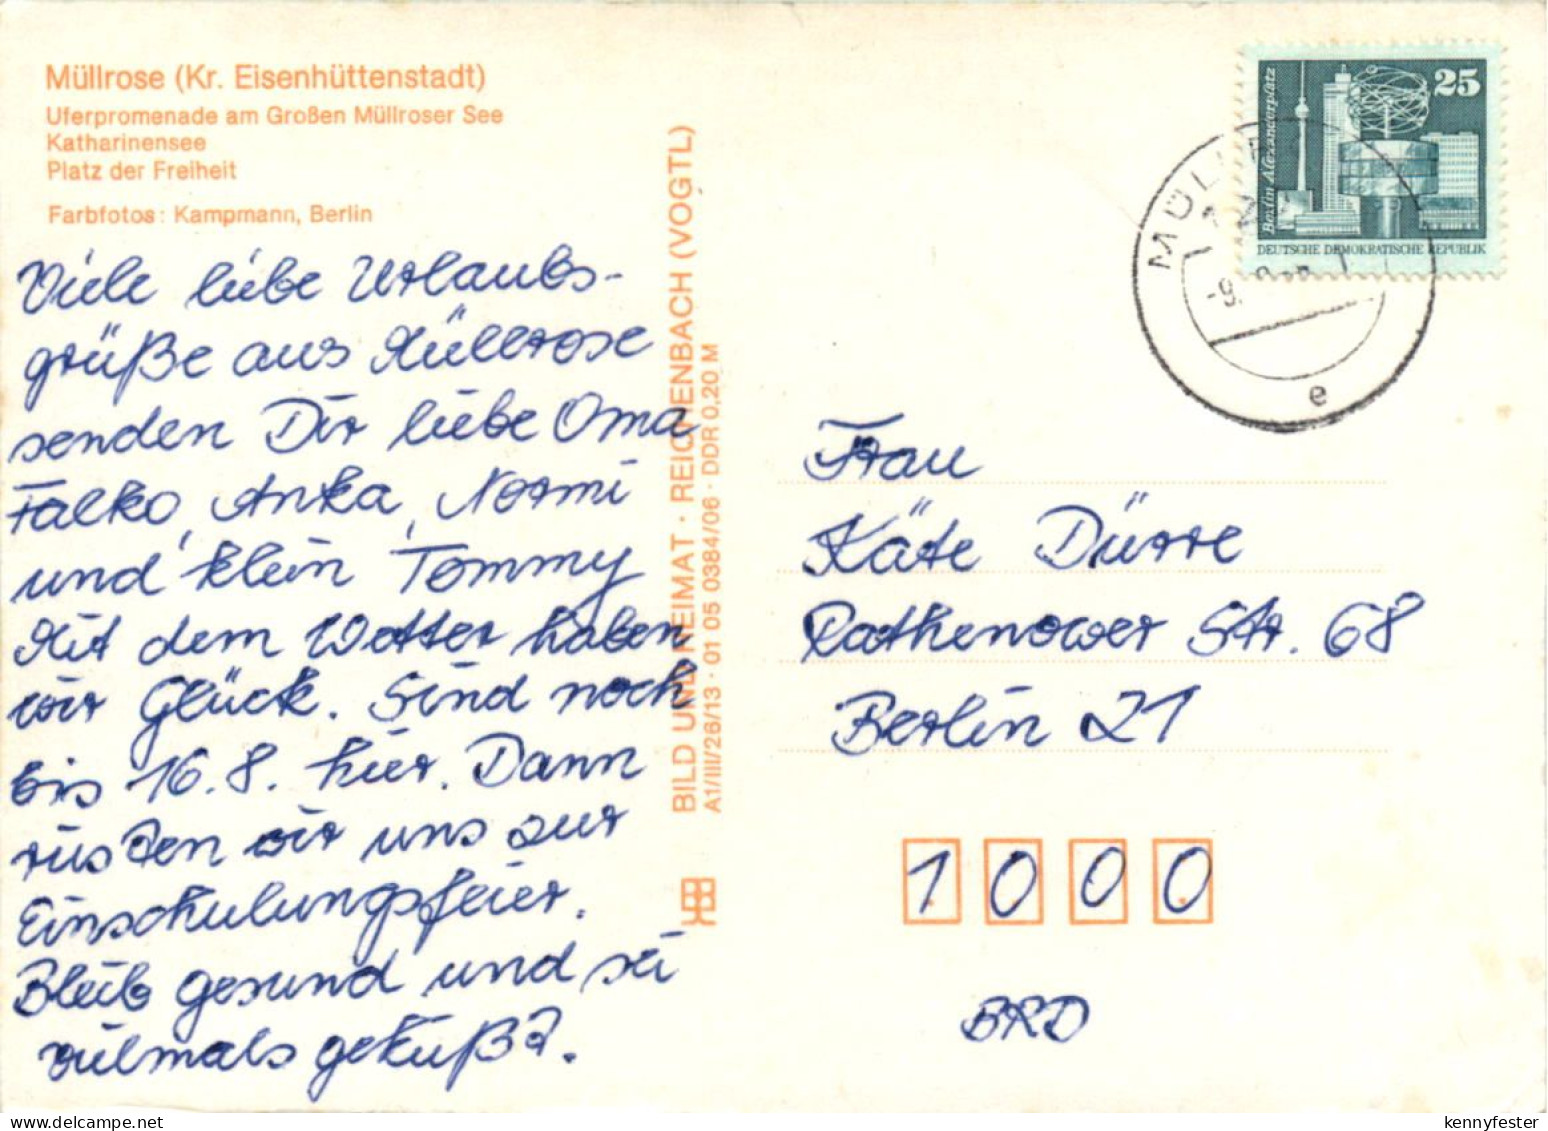 Müllrose (Kr. Eisenhüttenstadt)
Uferpromenade am Großen Müllroser See
Katharinensee
Platz der Freiheit
Farbfotos: Kampmann, Berlin
Viele liebe Urlaubs-
grüße aus Müllrose
senden Dir liebe Oma
Falko, Anka, Normi
und klein Tommy
Mit dem Wetter haben
wir Glück. Sind noch
bis 16.8. hier. Dann
rüsten wir uns zur
Einschulungsfeier.
Bleib gesund und sei
vielmals geküßt.
BILD UND HEIMAT · REICHENBACH (VOGTL)
A1/III/26/13 · 01 05 0384/06 · DDR 0,20 M
25
Berlin Alexanderplatz
DEUTSCHE DEMOKRATISCHE REPUBLIK
-9.
e
Frau
Käte Dürre
Rathenower Str. 68
Berlin 21
1000
BRD
kennyfester